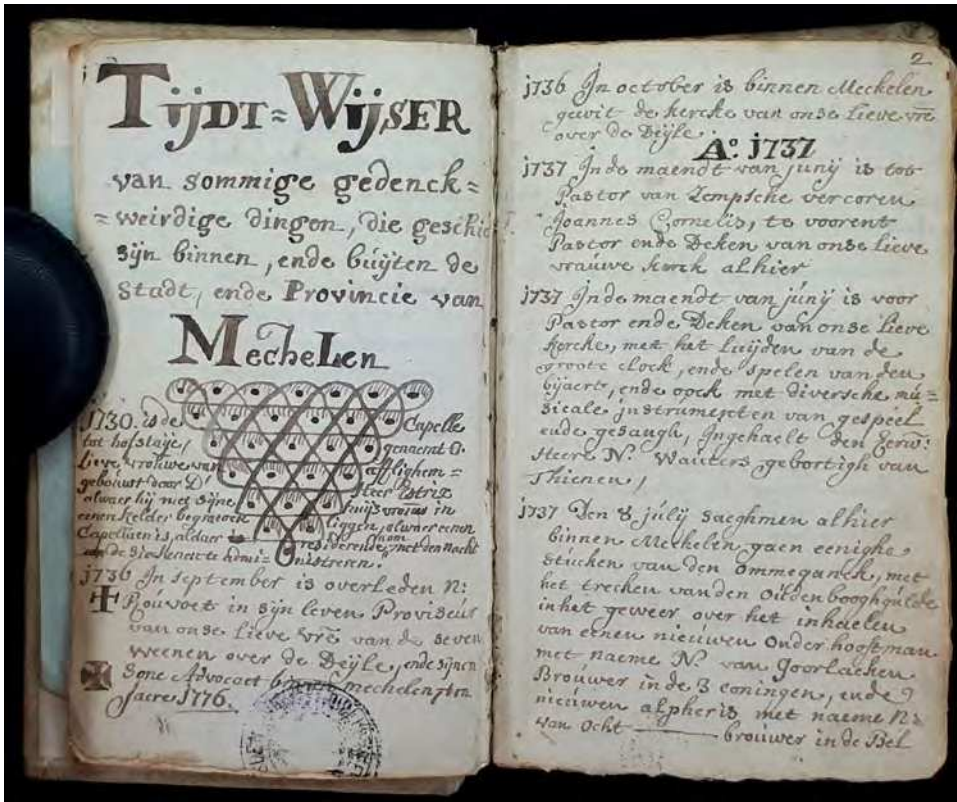 Tijdt=Wijser
van sommige gedenck=
=weirdige dingen, die geschie
sijn binnen, ende buijten de
Stadt, ende Provincie van
Mechelen
1730. is de Capelle
tot hofstaije, genaemt O.
Lieve vrouwe van afflighem=
gebouwt door D' Heer
alwaer hij met sijne huijsvrouw in
eenen Kelder begraeven liggen, alwaer eenen
Capellaen is, aldaer residerende, met den nacht
1736 In september is overleden N:
Rouvoet in sijn leven Proviseur
van onse Lieve vre van de seven
weenen over de Deijle, ende sijnen
Sone Advocaet binnen mechelen
Jaere 1776.
2
1736 In october is binnen Mechelen
gewit de kercke van onse Lieve vre
over de Deijle
Ao. 1737
1737 Inde maendt van junij is tot
Pastor van Zempsche vercoren
Joannes Cornelis, te voorent
Pastor ende Deken van onse Lieve
vrauwe kerck alhier
1737 Inde maendt van junij is voor
Pastor ende Deken van onse Lieve
kercke, met het Luijden van de
groote clock, ende spelen van den
bijaert, ende oock met diversche mu=
sicale instrumenten van gespeel
ende gesangh, Ingehaelt den Eerw:
Heere N. Wauters gebortigh van
Thienen,
1737 Den 8 julij saeghmen alhier
binnen Mechelen gaen eenighe
stucken van den ommeganck, met
het trecken vanden Ouden booghgulde
in het geweer over het inhaelen
van eenen nieuwen Onderhooftman
met naeme N. van Goorlacken
Brouwer inde 3 coningen, ende
nieuwen alpheris met naeme N:
van Ocht brouwer in de Bel